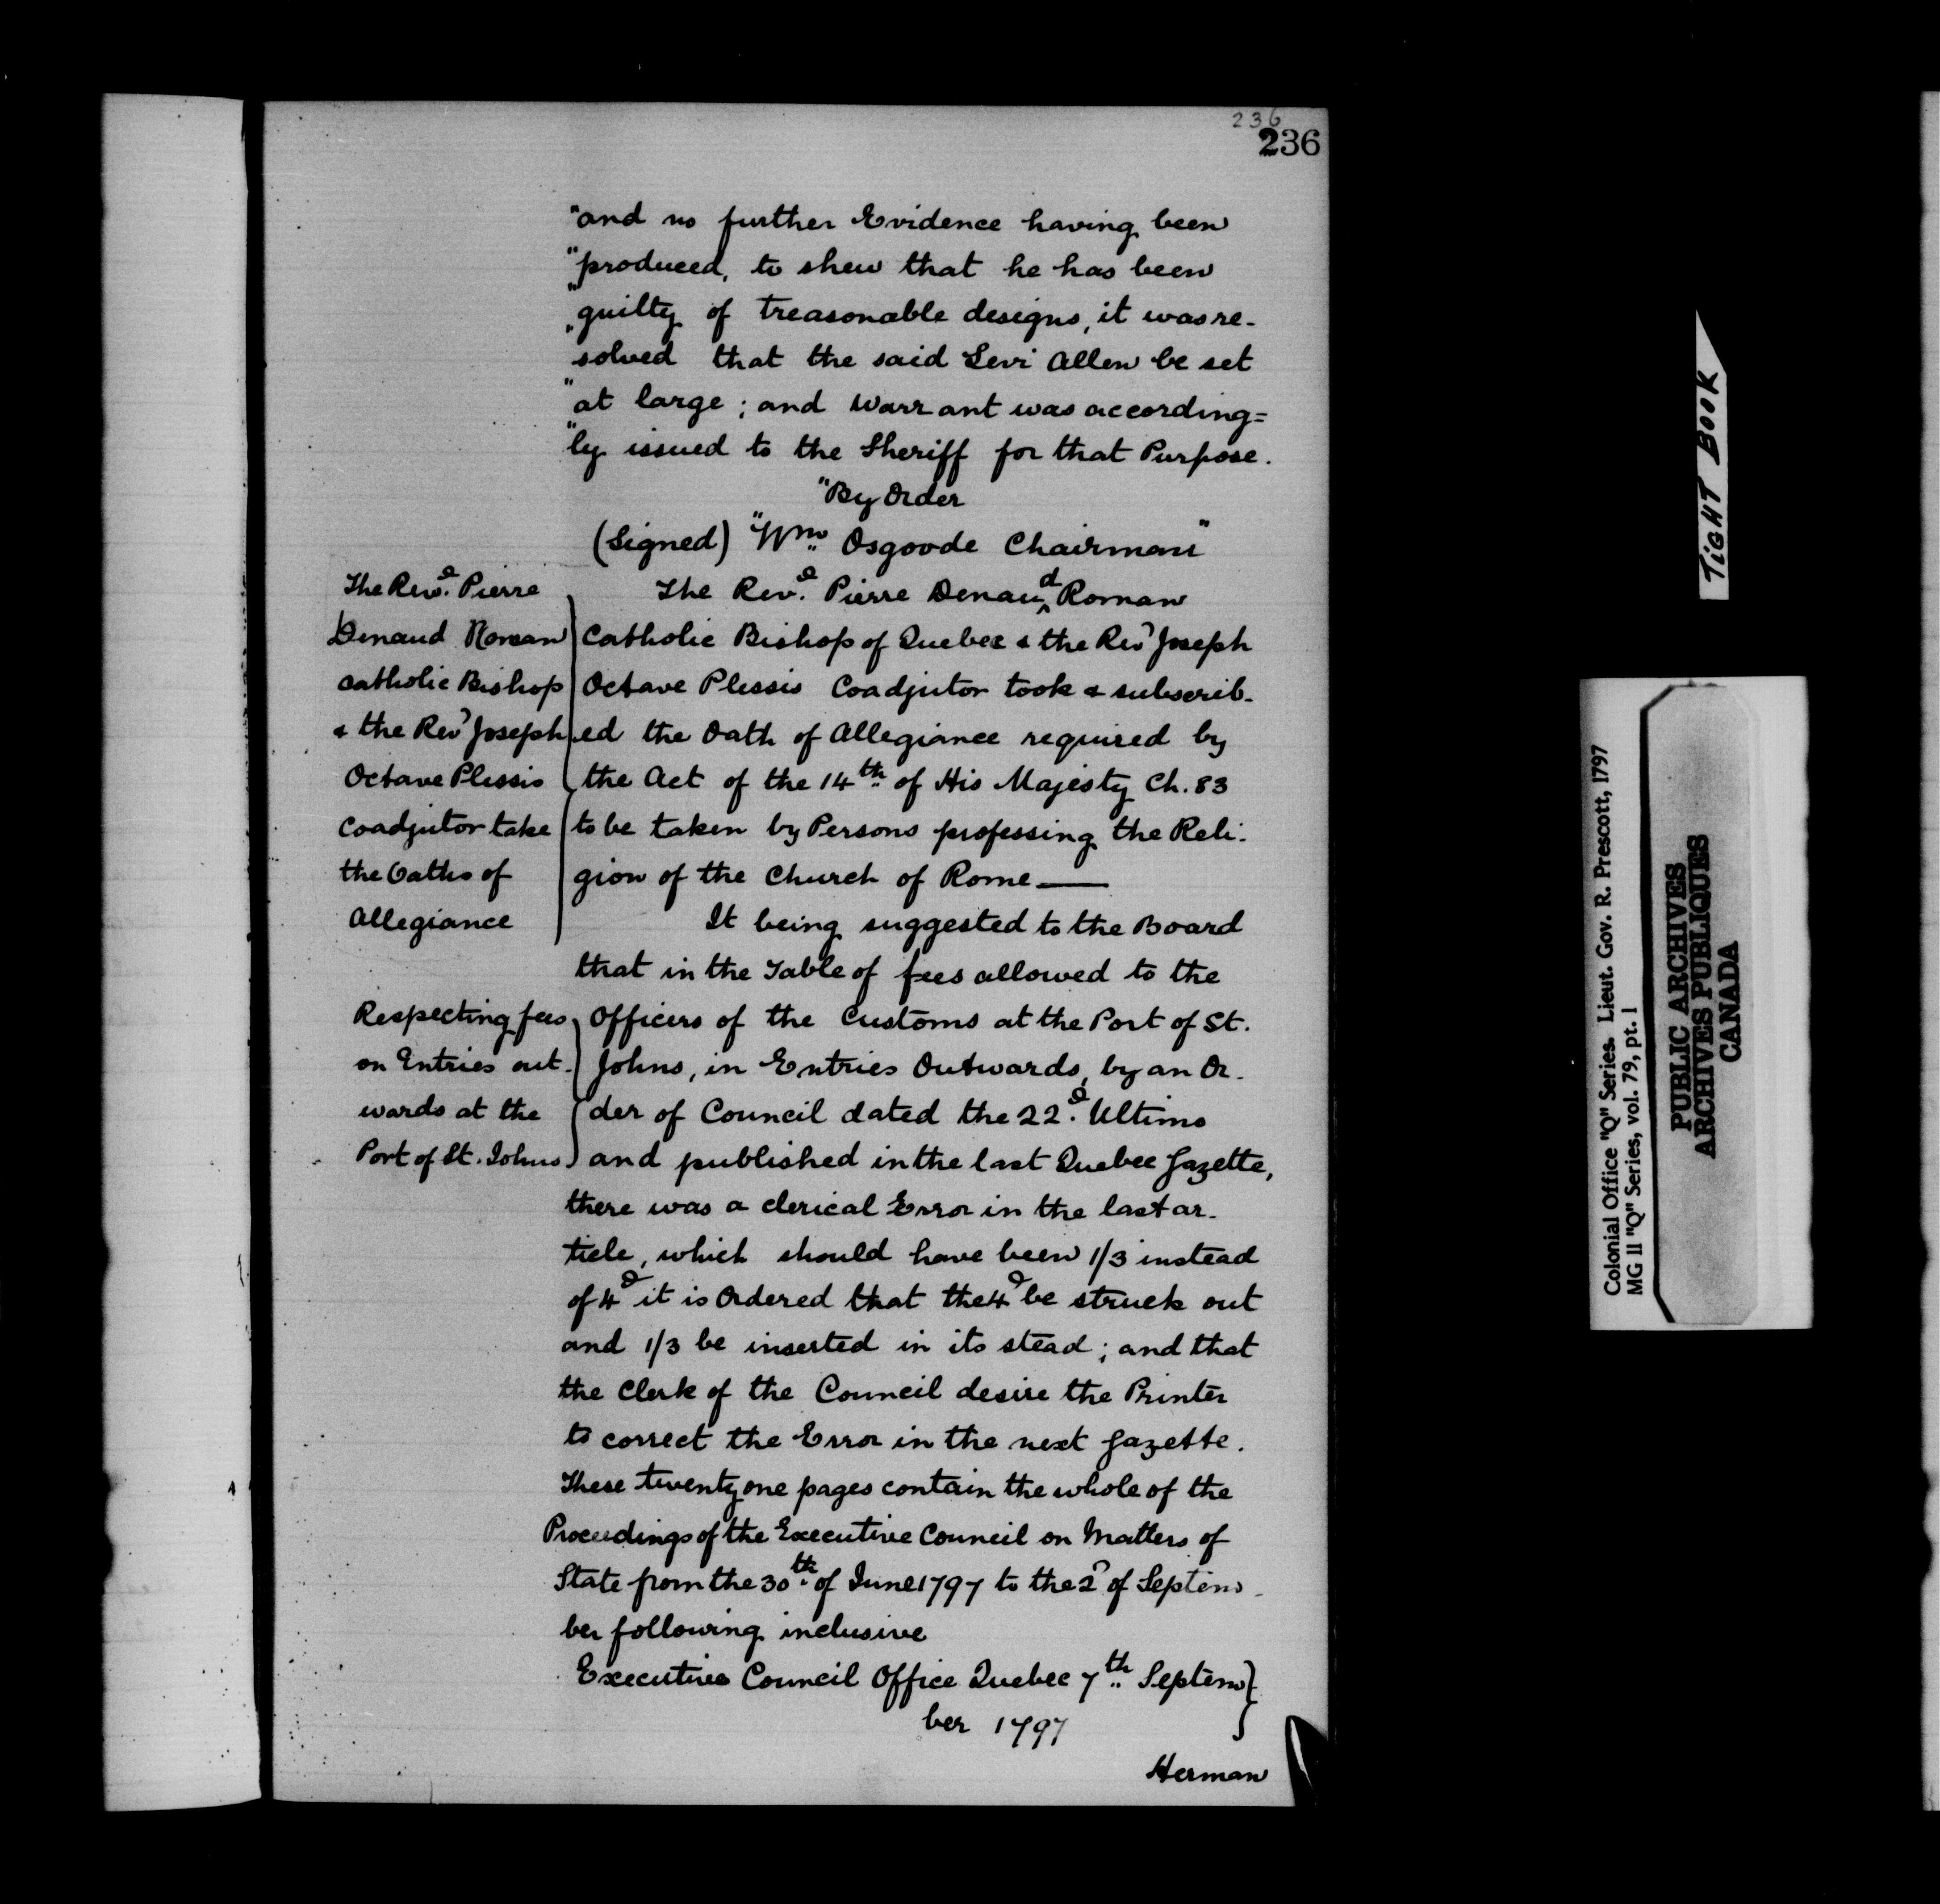 236
236
"and no further Evidence having been
"produced, to shew that he has been
"guilty of treasonable designs, it was re-
"solved that the said Levi Allen be set
"at large; and Warrant was according=
"ly issued to the Sheriff for that Purpose.
"By Order
(Signed) "Wm. Osgoode Chairman"
The Revd. Pierre
Denaud Roman
catholic Bishop
& the Revd Joseph
Octave Plessis
Coadjutor take
the Oaths of
Allegiance
The Revd. Pierre Denaud Roman
Catholic Bishop of Quebec & the Revd Joseph
Octave Plessis Coadjutor took & subscrib-
ed the Oath of Allegiance required by
the Act of the 14th. of His Majesty Ch. 83
to be taken by Persons professing the Reli-
gion of the Church of Rome—
It being suggested to the Board
that in the Table of fees allowed to the
Respecting fees
on Entries out-
wards at the
Port of St. Johns
Officers of the Customs at the Port of St.
Johns, in Entries Outwards, by an Or-
der of Council dated the 22d. Ultimo
and published in the last Quebec Gazette,
there was a clerical Error in the last ar-
ticle, which should have been 1/3 instead
of 4d it is Ordered that the 4d be struck out
and 1/3 be inserted in its stead; and that
the Clerk of the Council desire the Printer
to correct the Error in the next Gazette.
These twenty one pages contain the whole of the
Proceedings of the Executive Council on Matters of
State from the 30th. of June 1797 to the 2d of Septem-
ber following inclusive
Executive Council Office Quebec 7th. Septem
ber 1797
Herman
TIGHT BOOK
Colonial Office "Q" Series. Lieut. Gov. R. Prescott, 1797
MG 11 "Q" Series, vol. 79, pt. 1
PUBLIC ARCHIVES
ARCHIVES PUBLIQUES
CANADA